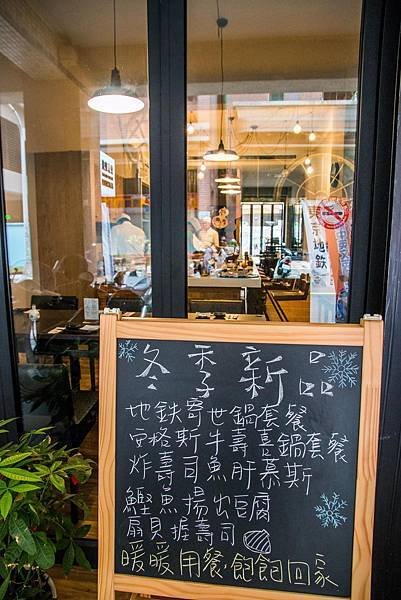 冬季新品
地鉄寄世鍋套餐
安格斯牛壽喜鍋套餐
炸壽司魚肝慕斯
鰹魚揚出豆腐
扇貝握壽司
暖暖用餐.飽飽回家